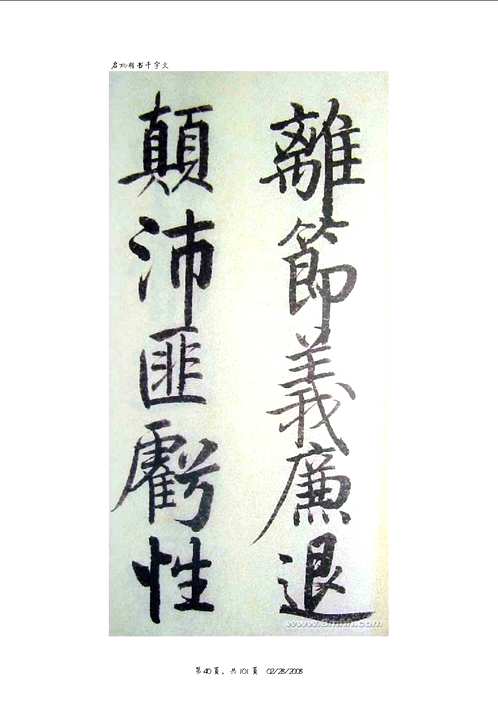 启功楷书千字文
離節義廉退
顛沛匪虧性
www.9mhh.com
第40頁，共101頁 02/28/2008